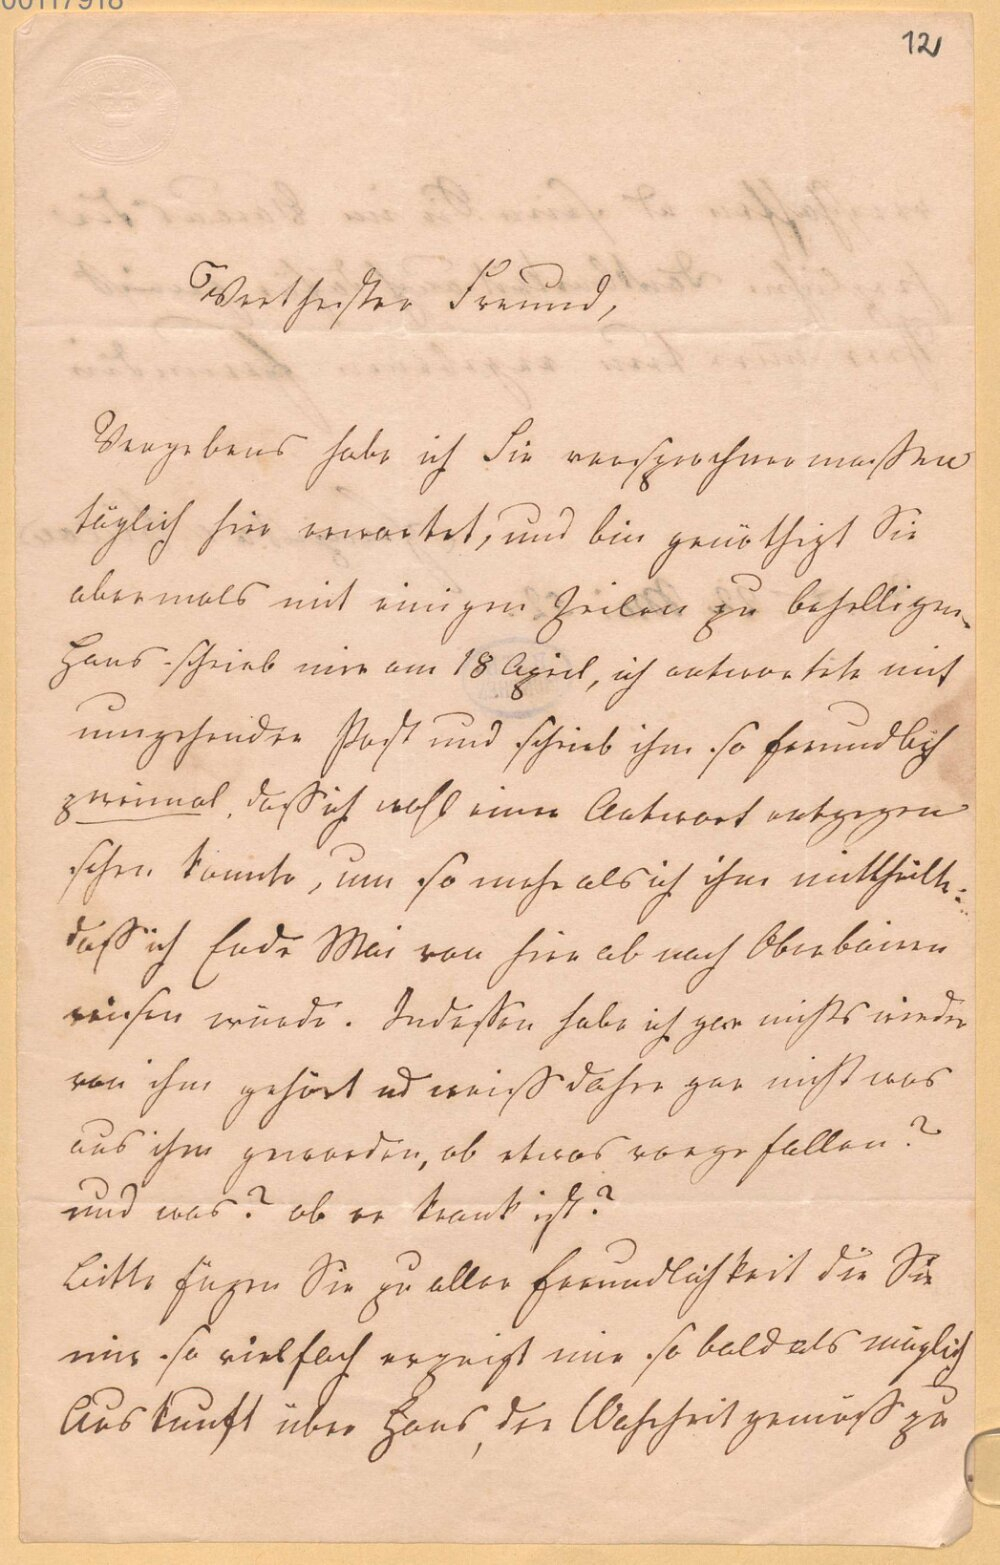 00117918
12
Werthester Freund,
Vergebens habe ich Sie versprochnermassen
täglich hier erwartet, und bin genöthigt Sie
abermals mit einigen Zeilen zu behelligen.
Hans schrieb mir am 18 April, ich antwortete mit
umgehender Post und schrieb ihm so freundlich
zweimal, dass ich wohl einer Antwort entgegen
sehen konnte, um so mehr als ich ihm mittheilte
dass ich Ende Mai von hier ab nach Oberbaiern
reisen würde. Indessen habe ich gar nichts wieder
von ihm gehört ud weiss daher gar nicht was
aus ihm geworden, ob etwas vorgefallen?
und was? ob er krank ist?
Bitte fügen Sie zu aller Freundlichkeit die Sie
mir so vielfach erzeigt mir so bald als möglich
Auskunft über Hans, der Wahrheit gemäss zu